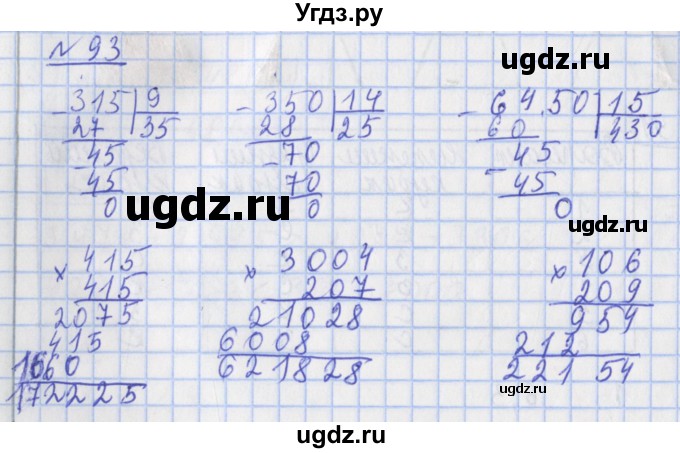 Угдз.ру
ugdz.ru
№ 93
- 315 | 9
27 | 35
- 45
45
0
- 350 | 14
28 | 25
- 70
70
0
- 64.50 | 15
60 | 430
- 45
45
0
ugdz.ru
ugdz.ru
× 415
415
2075
415
1660
172225
× 3004
207
21028
6008
621828
× 106
209
954
212
22154
ugdz.ru
ugdz.ru
ugdz.ru